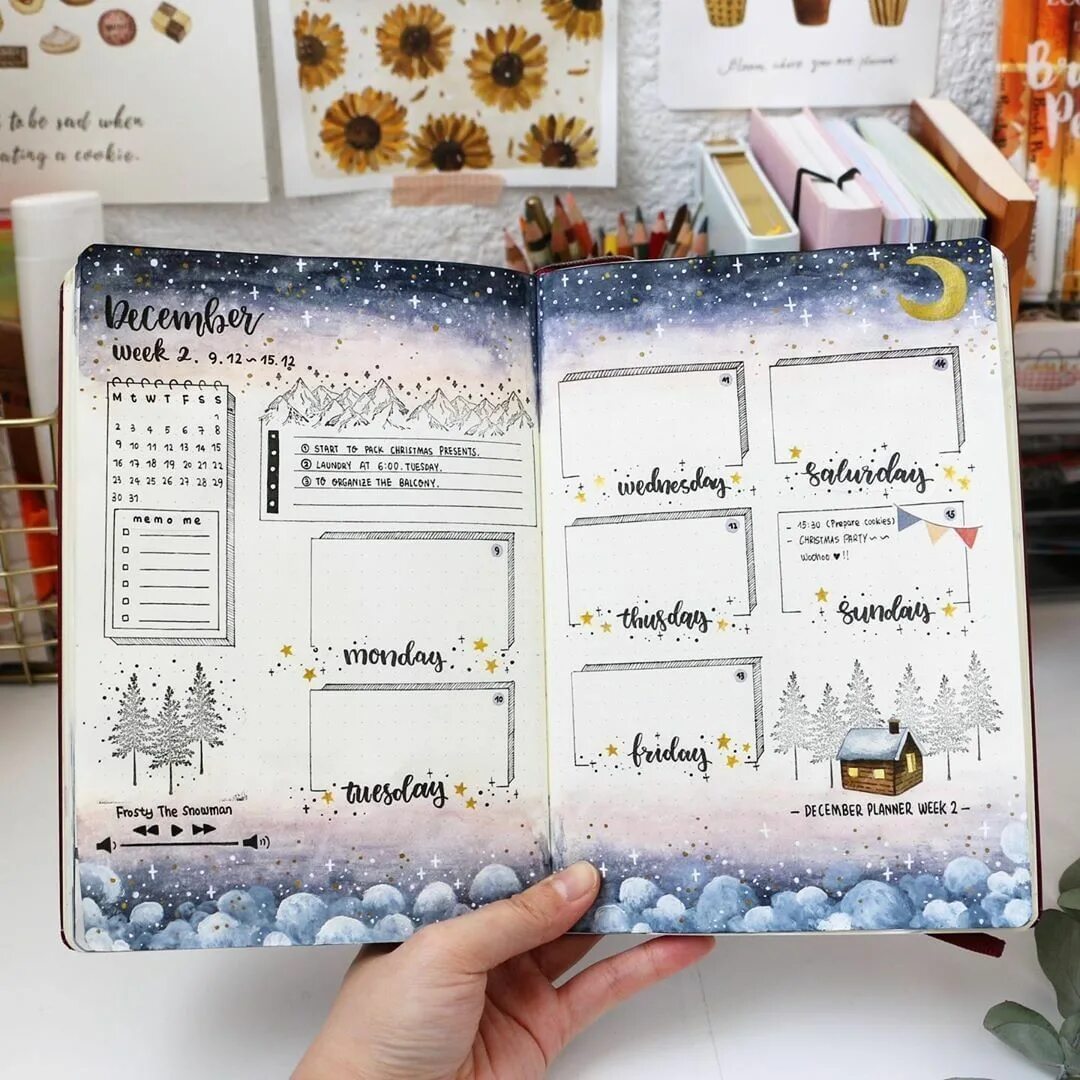 to be sad when
eating a cookie.
Bloom where you are planted
Br
December
Week 2. 9.12~15.12
M t W T F S S
1
2 3 4 5 6 7 8
9 10 11 12 13 14 15
16 17 18 19 20 21 22
23 24 25 26 27 28 29
30 31
memo me
① START TO PACK CHRISTMAS PRESENTS.
② LAUNDRY AT 6:00. TUESDAY.
③ TO ORGANIZE THE BALCONY.
9
monday
10
tuesday
Frosty The Snowman
11
wednesday
12
thusday
13
friday
14
saturday
15
- 15:30 (Prepare cookies)
- CHRISTMAS PARTY~~
Woohoo ♥!!
sunday
- DECEMBER PLANNER WEEK 2 -